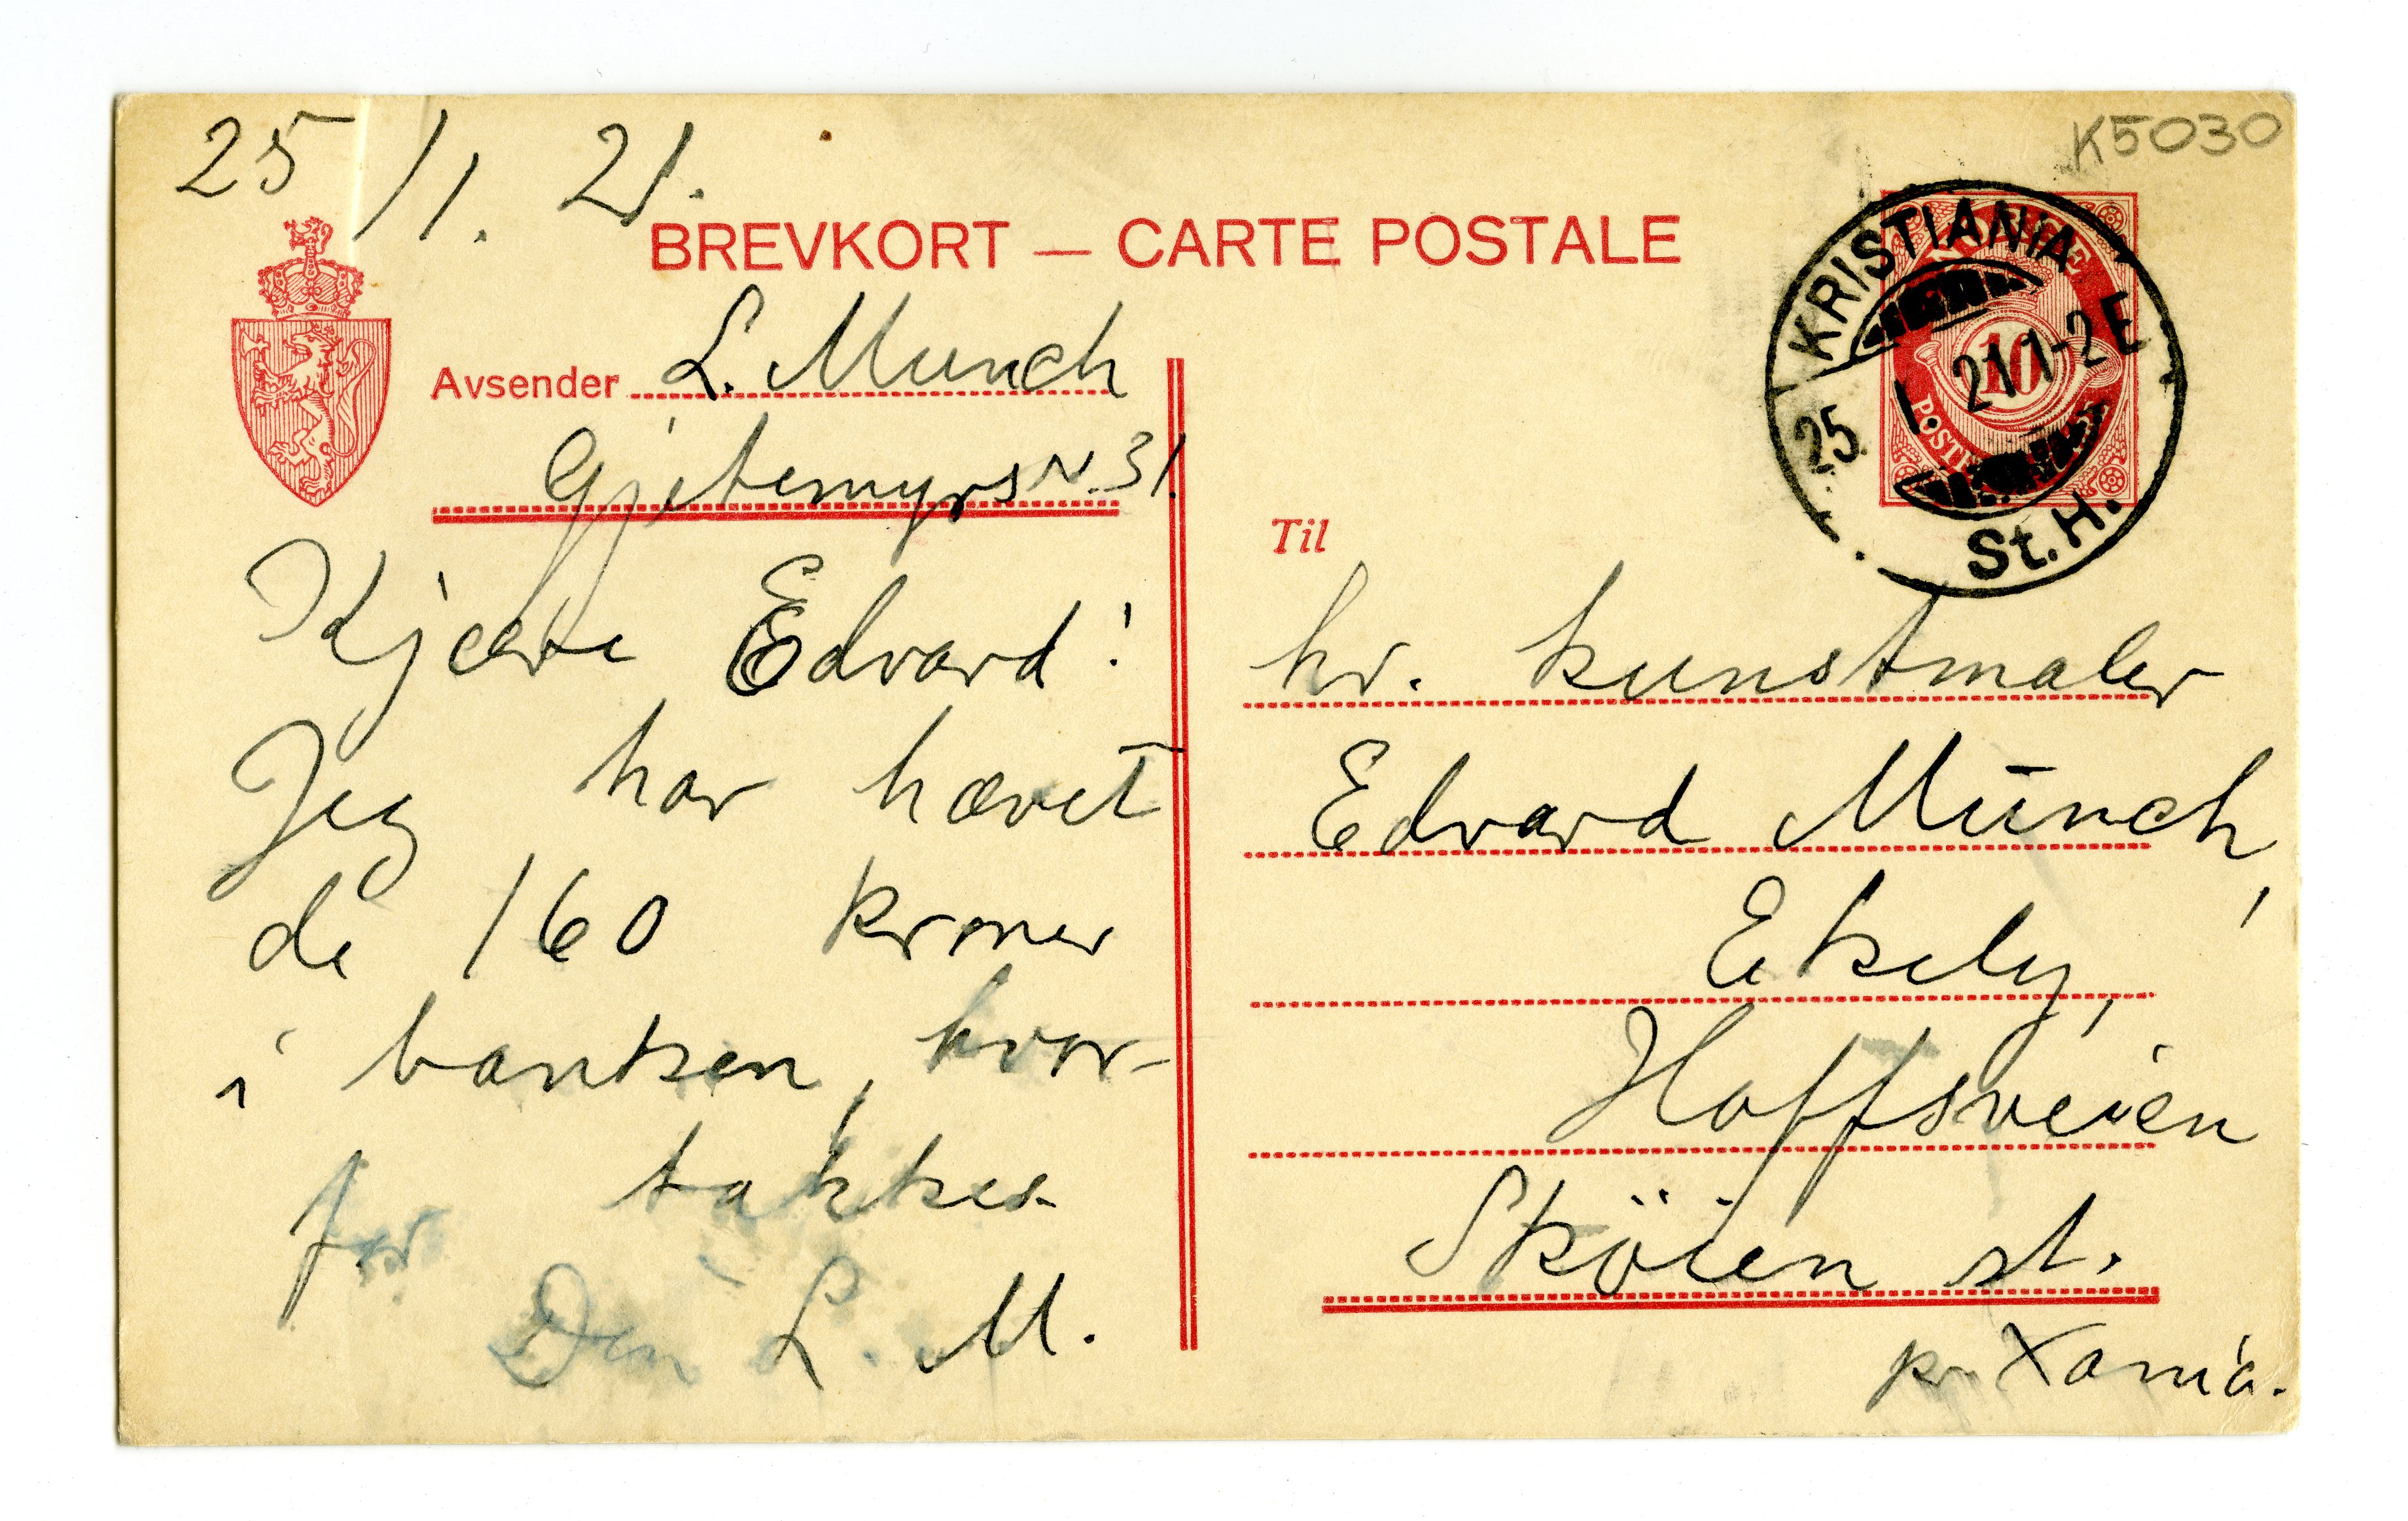 25/1. 21.
K5030
BREVKORT — CARTE POSTALE
Avsender L. Munch
Gjetemyrsv. 31.
Kjære Edvard!
Jeg har hævet
de 160 kroner
i banken, hvor-
for takker
Din L. M.
KRISTIANIA
25. 1. 21 1-2 E
St. H.
10
POSTF
Til
hr. kunstmaler
Edvard Munch,
Ekely,
Hoffsveien
Sköien st.
pr. Xania.